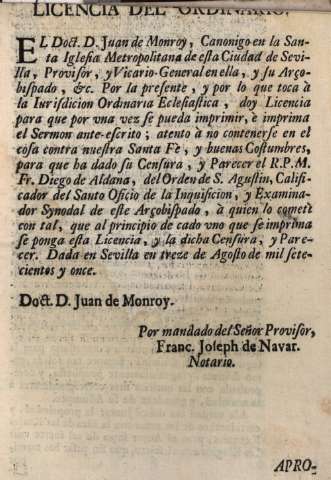 LICENCIA DEL ORDINARIO.
EL Doct. D. Juan de Monroy, Canonigo en la San-
ta Iglesia Metropolitana de esta Ciudad de Sevi-
lla, Provisor, y Vicario General en ella, y su Arço-
bispado, &c. Por la presente, y por lo que toca à
la Iurisdicion Ordinaria Eclesiastica, doy Licencia
para que por vna vez se pueda imprimir, è imprima
el Sermon ante-escrito; atento à no contenerse en el
cosa contra nuestra Santa Fè, y buenas Costumbres,
para que ha dado su Censura, y Parecer el R.P.M.
Fr. Diego de Aldana, del Orden de S. Agustin, Califi-
cador del Santo Oficio de la Inquisicion, y Examina-
dor Synodal de este Arçobispado, à quien lo cometi
con tal, que al principio de cada vno que se imprima
se ponga esta Licencia, y la dicha Censura, y Pare-
cer. Dada en Sevilla en treze de Agosto de mil sete-
cientos y once.
Doct. D. Juan de Monroy.
Por mandado del Señor Provisor,
Franc. Joseph de Navar.
Notario.
APRO-